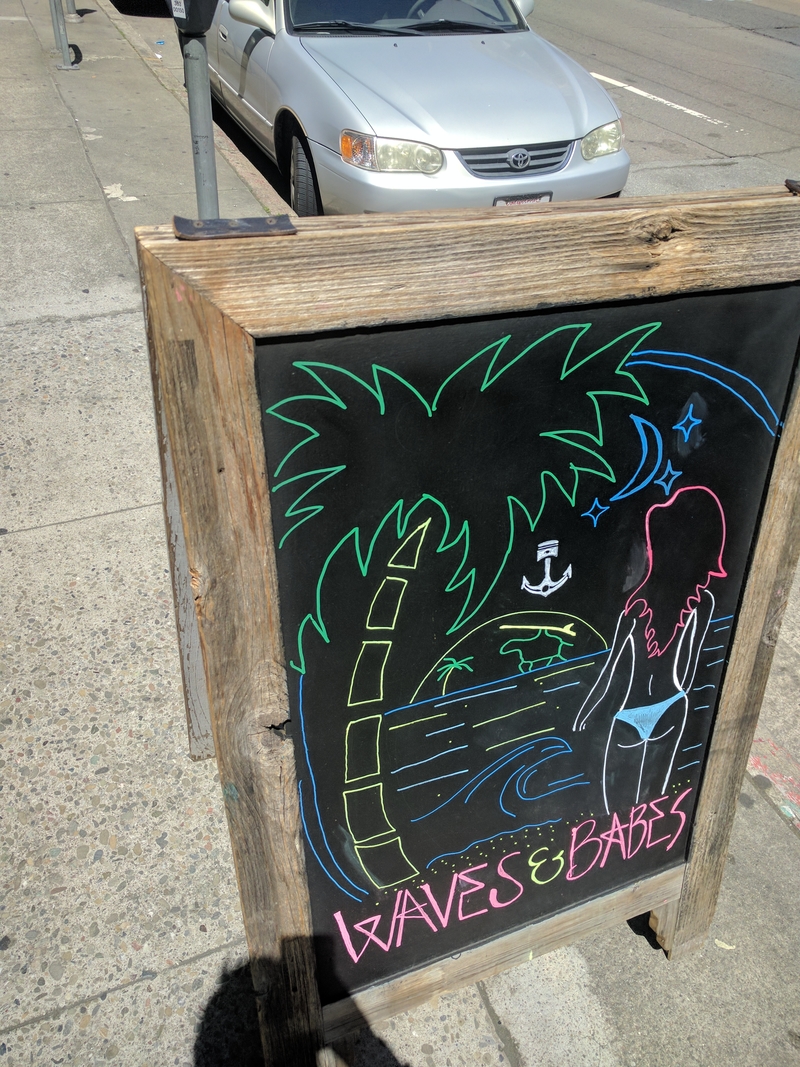 WAVES & BABES